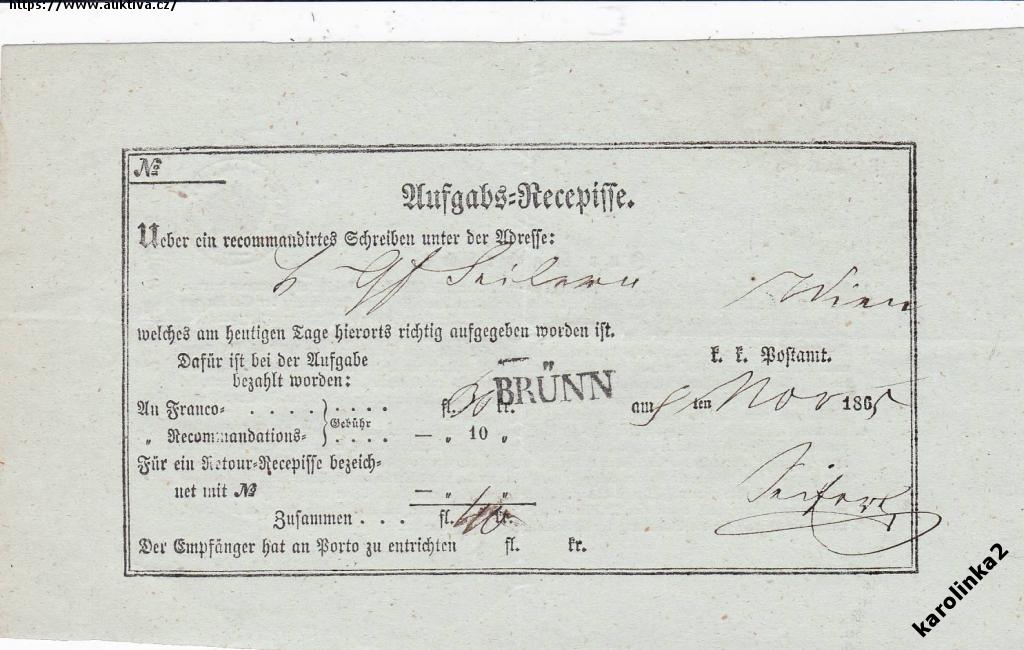 https://www.auktiva.cz/
№
Aufgabs-Recepisse.
Ueber ein recommandirtes Schreiben unter der Adresse:
Gf Seilern Wien
welches am heutigen Tage hierorts richtig aufgegeben worden ist.
Dafür ist bei der Aufgabe
bezahlt worden:
k. k. Postamt.
An Franco- . . . . . . . . fl. 30 kr.
BRÜNN
am ten Nov 1865
„ Recommandations- Gebühr . . . . — „ 10 „
Für ein Retour-Recepisse bezeich-
net mit № — „ „
Seifert
Zusammen . . . fl. 40 kr.
Der Empfänger hat an Porto zu entrichten fl. kr.
karolinka2